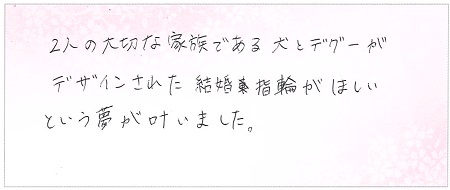 2人の大切な家族である犬とデグーが
デザインされた結婚指輪がほしい
という夢が叶いました。